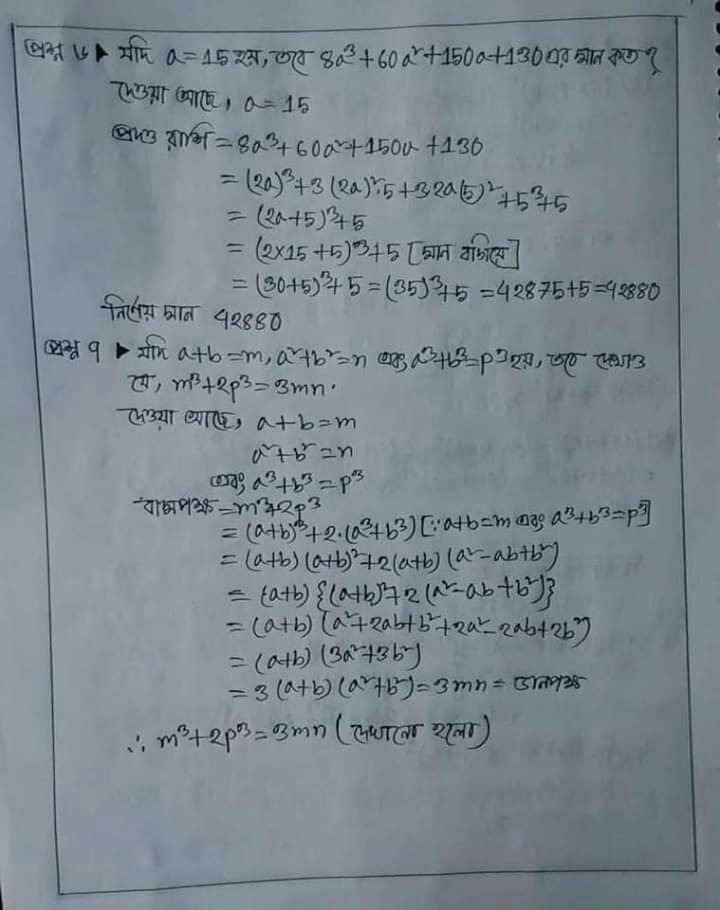 প্রশ্ন ৬ ▶ যদি a = 15 হয়, তবে 8a³+60a²+150a+130 এর মান কত?
দেওয়া আছে, a = 15
প্রদত্ত রাশি = 8a³+60a²+150a+130
= (2a)³+3(2a)².5+3 2a(5)²+5³+5
= (2a+5)³+5
= (2×15+5)³+5 [মান বসিয়ে]
= (30+5)³+5 = (35)³+5 = 42875+5=42880
নির্ণেয় মান 42880
প্রশ্ন ৭ ▶ যদি a+b=m, a²+b²=n এবং a³+b³=p³ হয়, তবে দেখাও
যে, m³+2p³=3mn.
দেওয়া আছে, a+b=m
a²+b²=n
এবং a³+b³=p³
বামপক্ষ=m³+2p³
= (a+b)³+2.(a³+b³) [∵a+b=m এবং a³+b³=p³]
= (a+b) (a+b)²+2(a+b) (a²-ab+b²)
= (a+b) {(a+b)²+2 (a²-ab+b²)}
= (a+b) (a²+2ab+b²+2a²-2ab+2b²)
= (a+b) (3a²+3b²)
= 3 (a+b) (a²+b²)=3mn= ডানপক্ষ
∴ m³+2p³=3mn (দেখানো হলো)